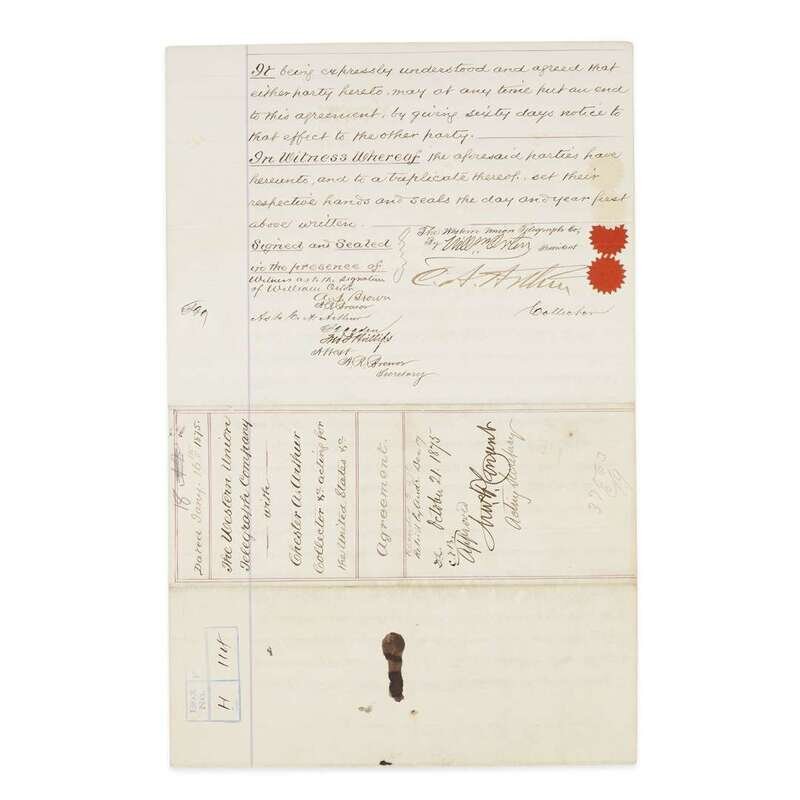 It being expressly understood and agreed that
either party hereto, may at any time put an end
to this agreement, by giving sixty days notice to
that effect to the other party.
In Witness Whereof the aforesaid parties have
hereunto, and to a triplicate thereof, set their
respective hands and seals the day and year first
above written.
The Western Union Telegraph Co.
By William Orton
President
Signed and Sealed
in the presence of
C. A. Arthur
Collector
Witness as to the signature
of William Orton
Brown
As to C. A. Arthur
Jno Phillips
Attest
Secretary
Dated Jany. 16th 1875.
The Western Union
Telegraph Company
with
Chester A. Arthur
Collector &c acting for
the United States &c.
Agreement.
October 21. 1875
Approved
Conant
Actng Secretary
H 114